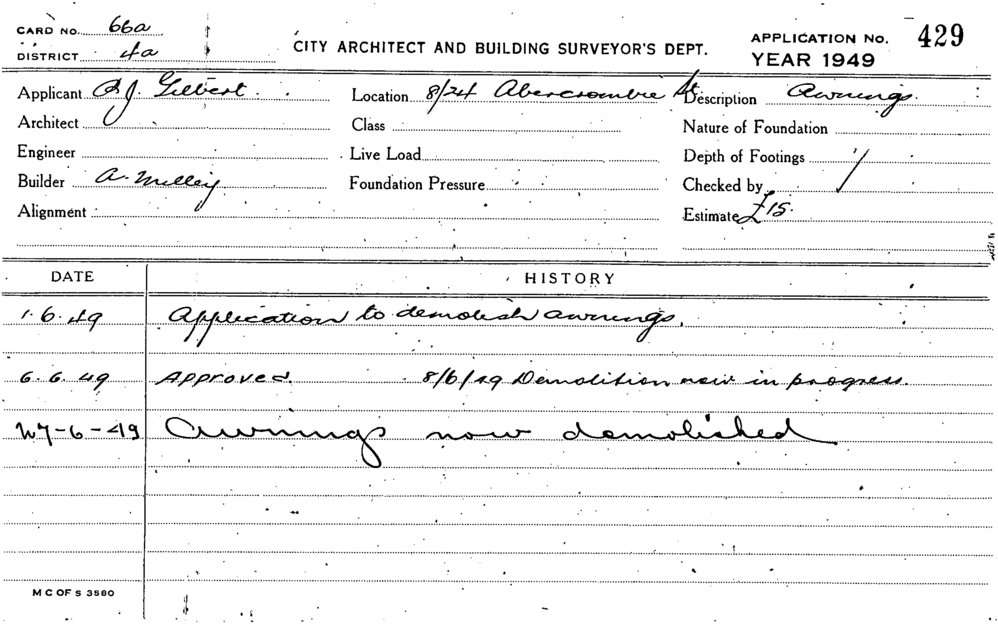 CARD NO. 66a
DISTRICT 4a
CITY ARCHITECT AND BUILDING SURVEYOR'S DEPT.
APPLICATION NO. 429
YEAR 1949
Applicant Gilbert. Location 8/24 Abercrombie St Description Awnings.
Architect Class Nature of Foundation
Engineer Live Load Depth of Footings
Builder A. Milley Foundation Pressure Checked by
Alignment Estimate £15.
DATE HISTORY
1.6.49 Application to demolish awnings.
6.6.49 Approved. 8/6/49 Demolition now in progress.
27-6-49 Awnings now demolished
M C OF S 3580